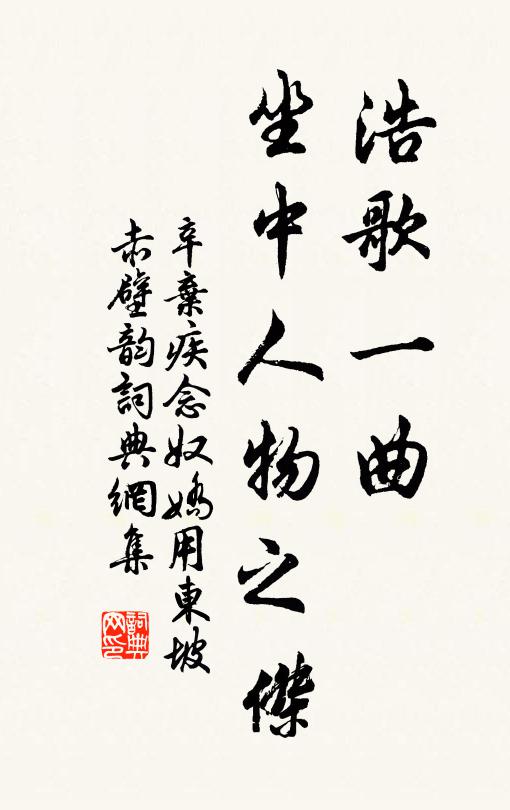 浩歌一曲
坐中人物之傑
辛棄疾念奴嬌用東坡
赤壁韵詞典網集
詞典网印